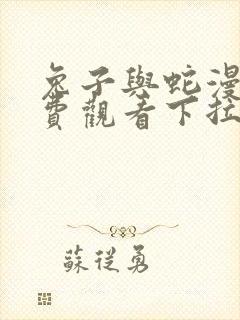 兔子與蛇漫
費觀看下拉
蘇從勇